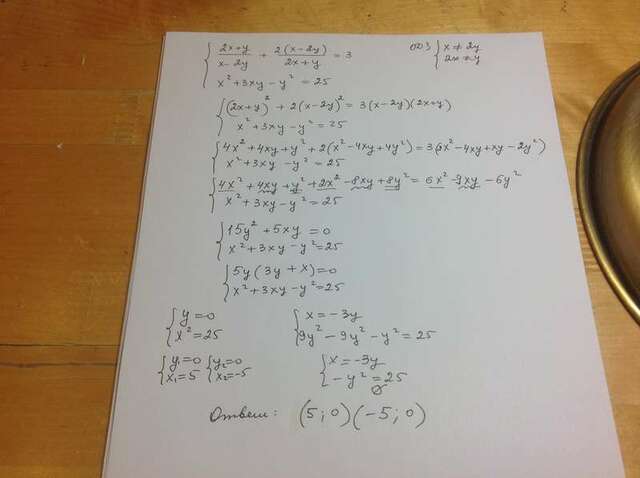 { (2x+y)/(x-2y) + 2(x-2y)/(2x+y) = 3 ОДЗ { x ≠ 2y
x² + 3xy - y² = 25 2x ≠ y
{ (2x+y)² + 2(x-2y)² = 3(x-2y)(2x+y)
x² + 3xy - y² = 25
{ 4x² + 4xy + y² + 2(x² - 4xy + 4y²) = 3(2x² - 4xy + xy - 2y²)
x² + 3xy - y² = 25
{ 4x² + 4xy + y² + 2x² - 8xy + 8y² = 6x² - 9xy - 6y²
x² + 3xy - y² = 25
{ 15y² + 5xy = 0
x² + 3xy - y² = 25
{ 5y(3y + x) = 0
x² + 3xy - y² = 25
{ y = 0 { x = -3y
x² = 25 9y² - 9y² - y² = 25
{ y₁ = 0 { y₂ = 0 { x = -3y
x₁ = 5 x₂ = -5 - y² = 25
∅
Ответ: (5; 0) (-5; 0)